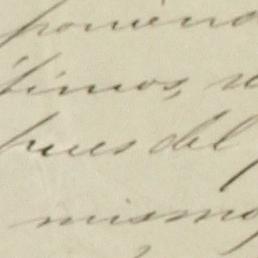 poniend
timos, 
pues del
mismo